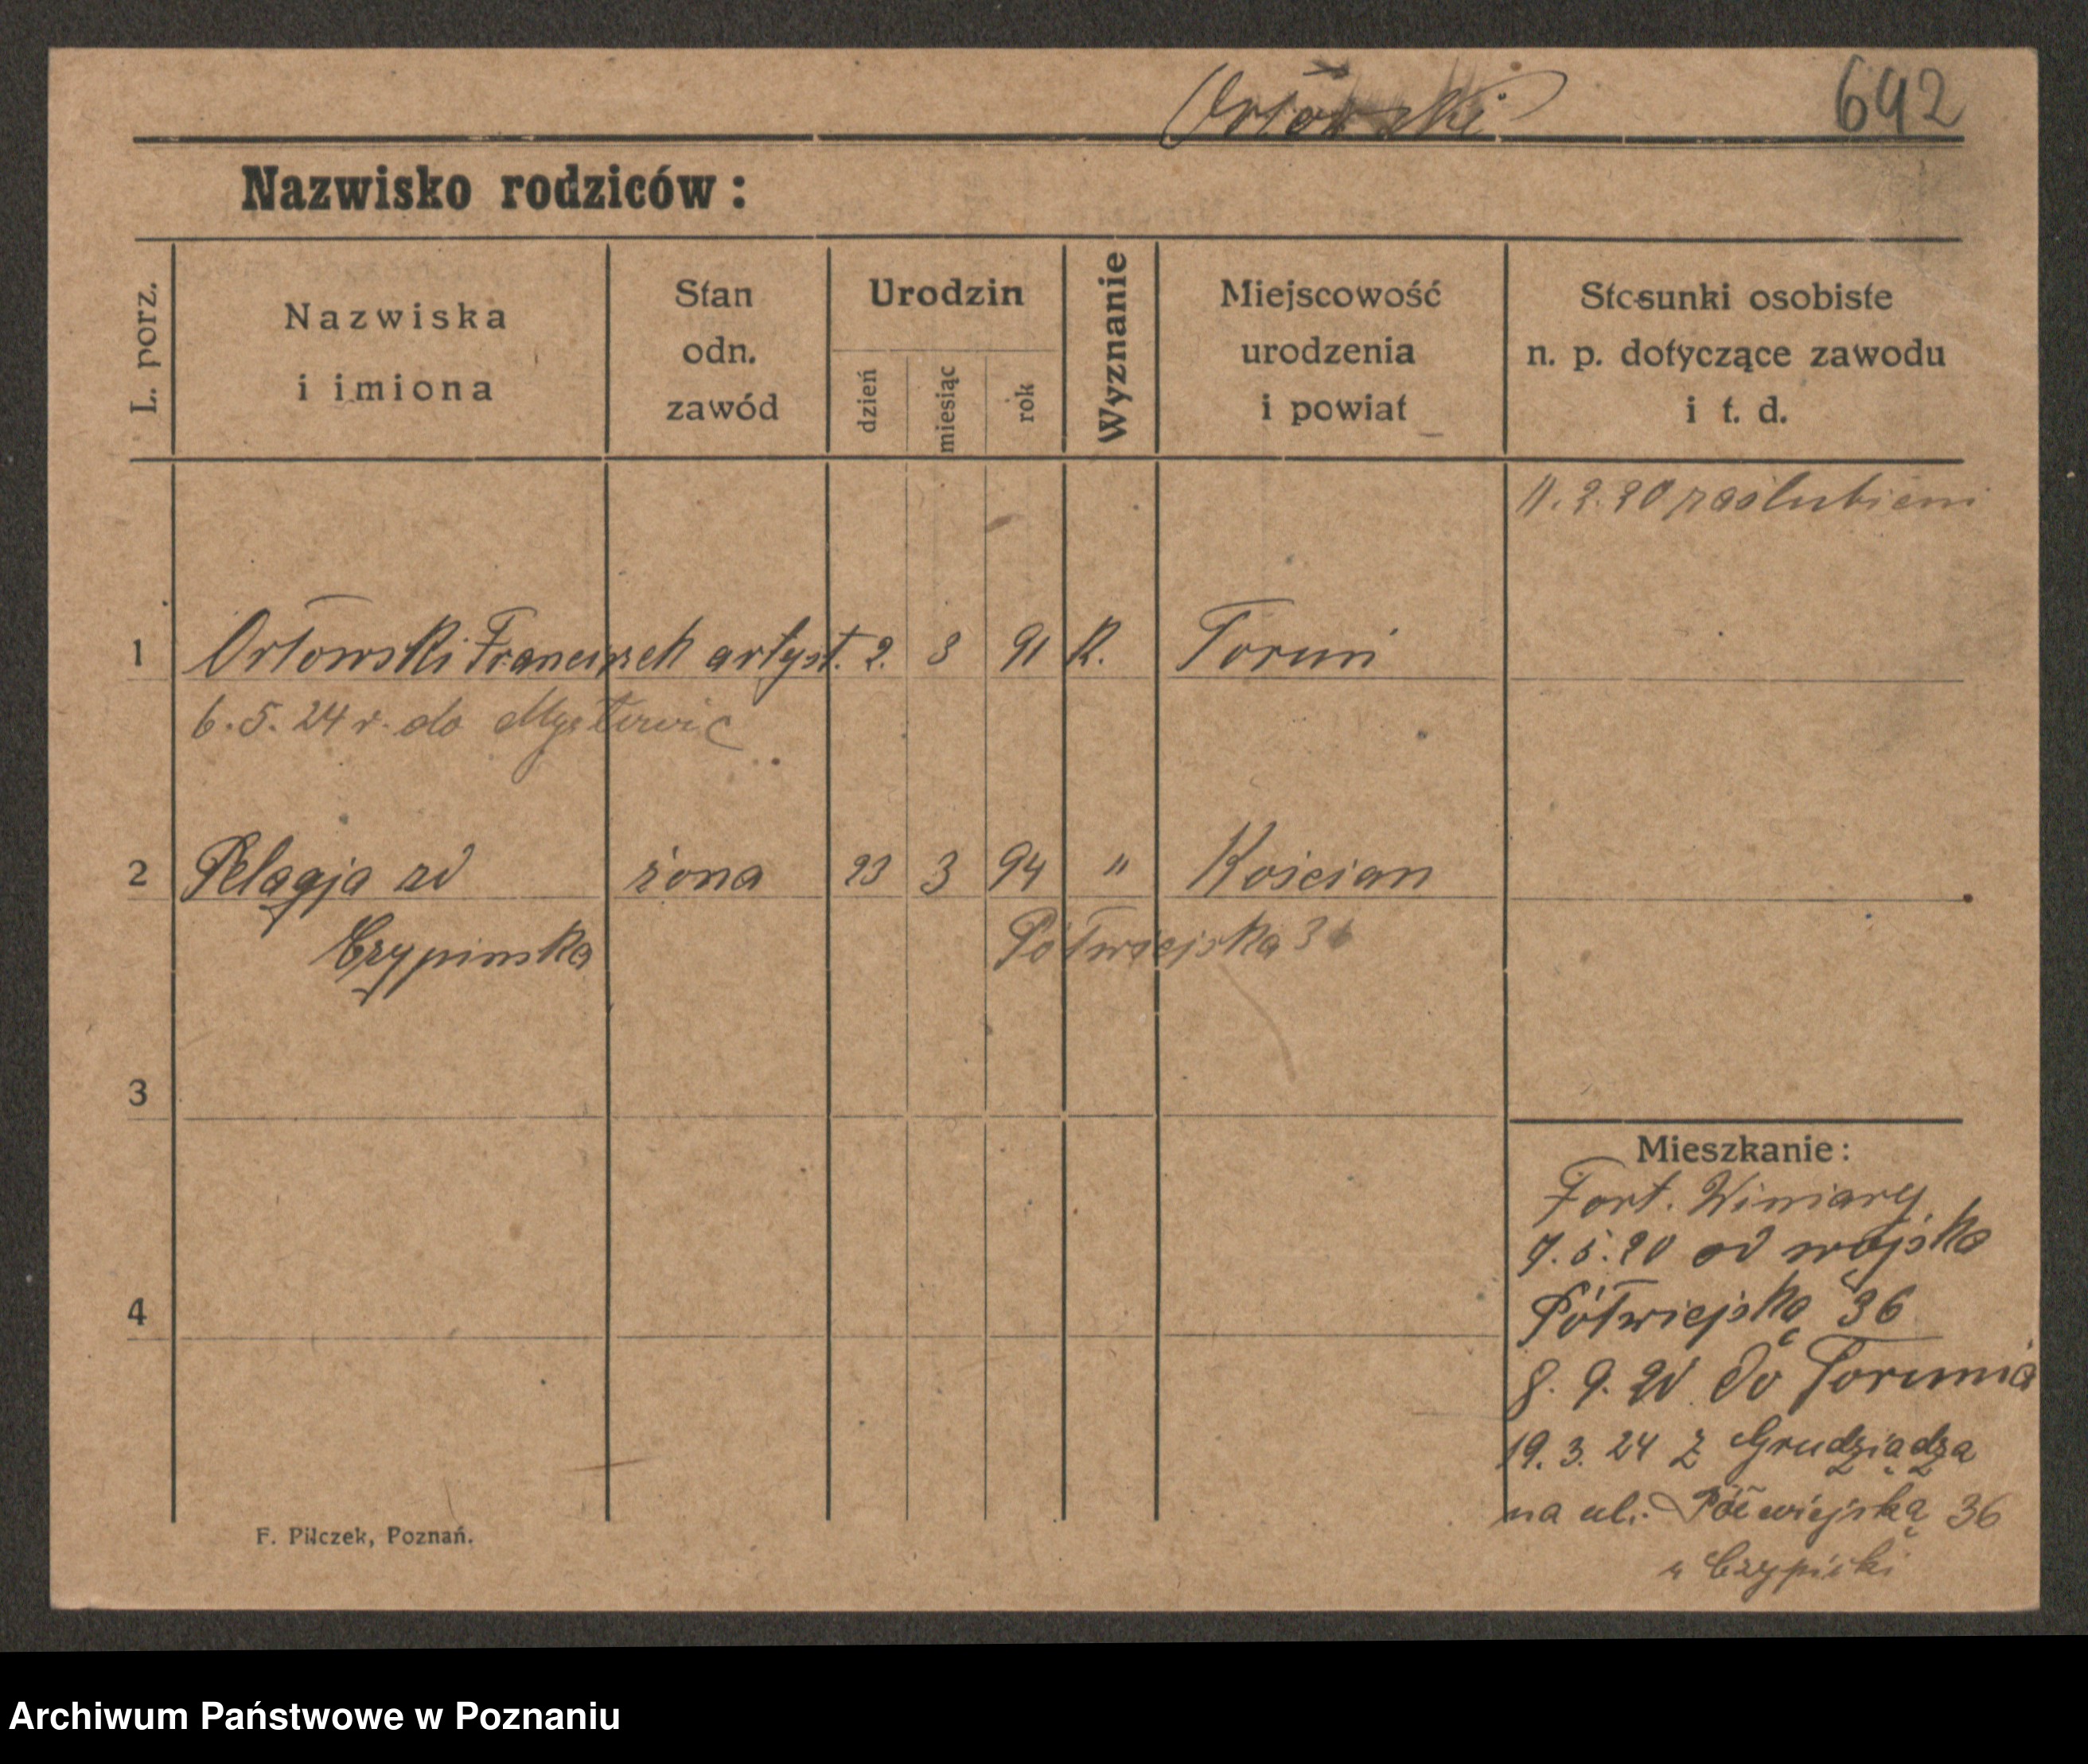 Orłowski 642
Nazwisko rodziców:
L. porz. Nazwiska i imiona Stan odn. zawód Urodzin dzień miesiąc rok Wyznanie Miejscowość urodzenia i powiat Stosunki osobiste n. p. dotyczące zawodu i t. d.
11.2.20 zaślubieni
1 Orłowski Franciszek artyst. 2. 8 91 K. Toruń
6.5.24 r. do Mysłowic
2 Pelagja zd żona 23 3 94 " Kościan
Czypinska Półwiejska 36
3
Mieszkanie:
Fort. Winiary
7.5.20 od wojska
4 Półwiejską 36
8. 9. 20 do Torunia
19. 3. 24 z Grudziądza
na ul. Półwiejską 36
F. Pilczek, Poznań.
u Czypicki
Archiwum Państwowe w Poznaniu